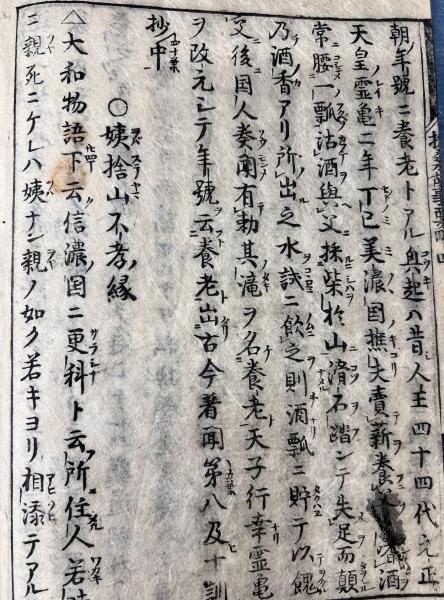 朝ノ年號ニ養老トアル興起ハ昔人王四十四代元正
天皇霊亀二年丁巳美濃国樵夫賣薪養父酒
常腰一瓢沽酒與父採柴於山滑石踏ンテ失足而顛
乃酒香アリ所出之水試ニ飲之則酒瓢ニ貯テ以餽
父後国人奏聞有勅其滝ヲ名養老ト天子行幸霊亀
ヲ改元シテ年號云養老出古今著聞第八及十訓
抄中
○姨捨山不孝縁
△大和物語下云信濃国ニ更科ト云所住人若時
ニ親死ニケレハ姨ナン親ノ如ク若キヨリ相添テアル